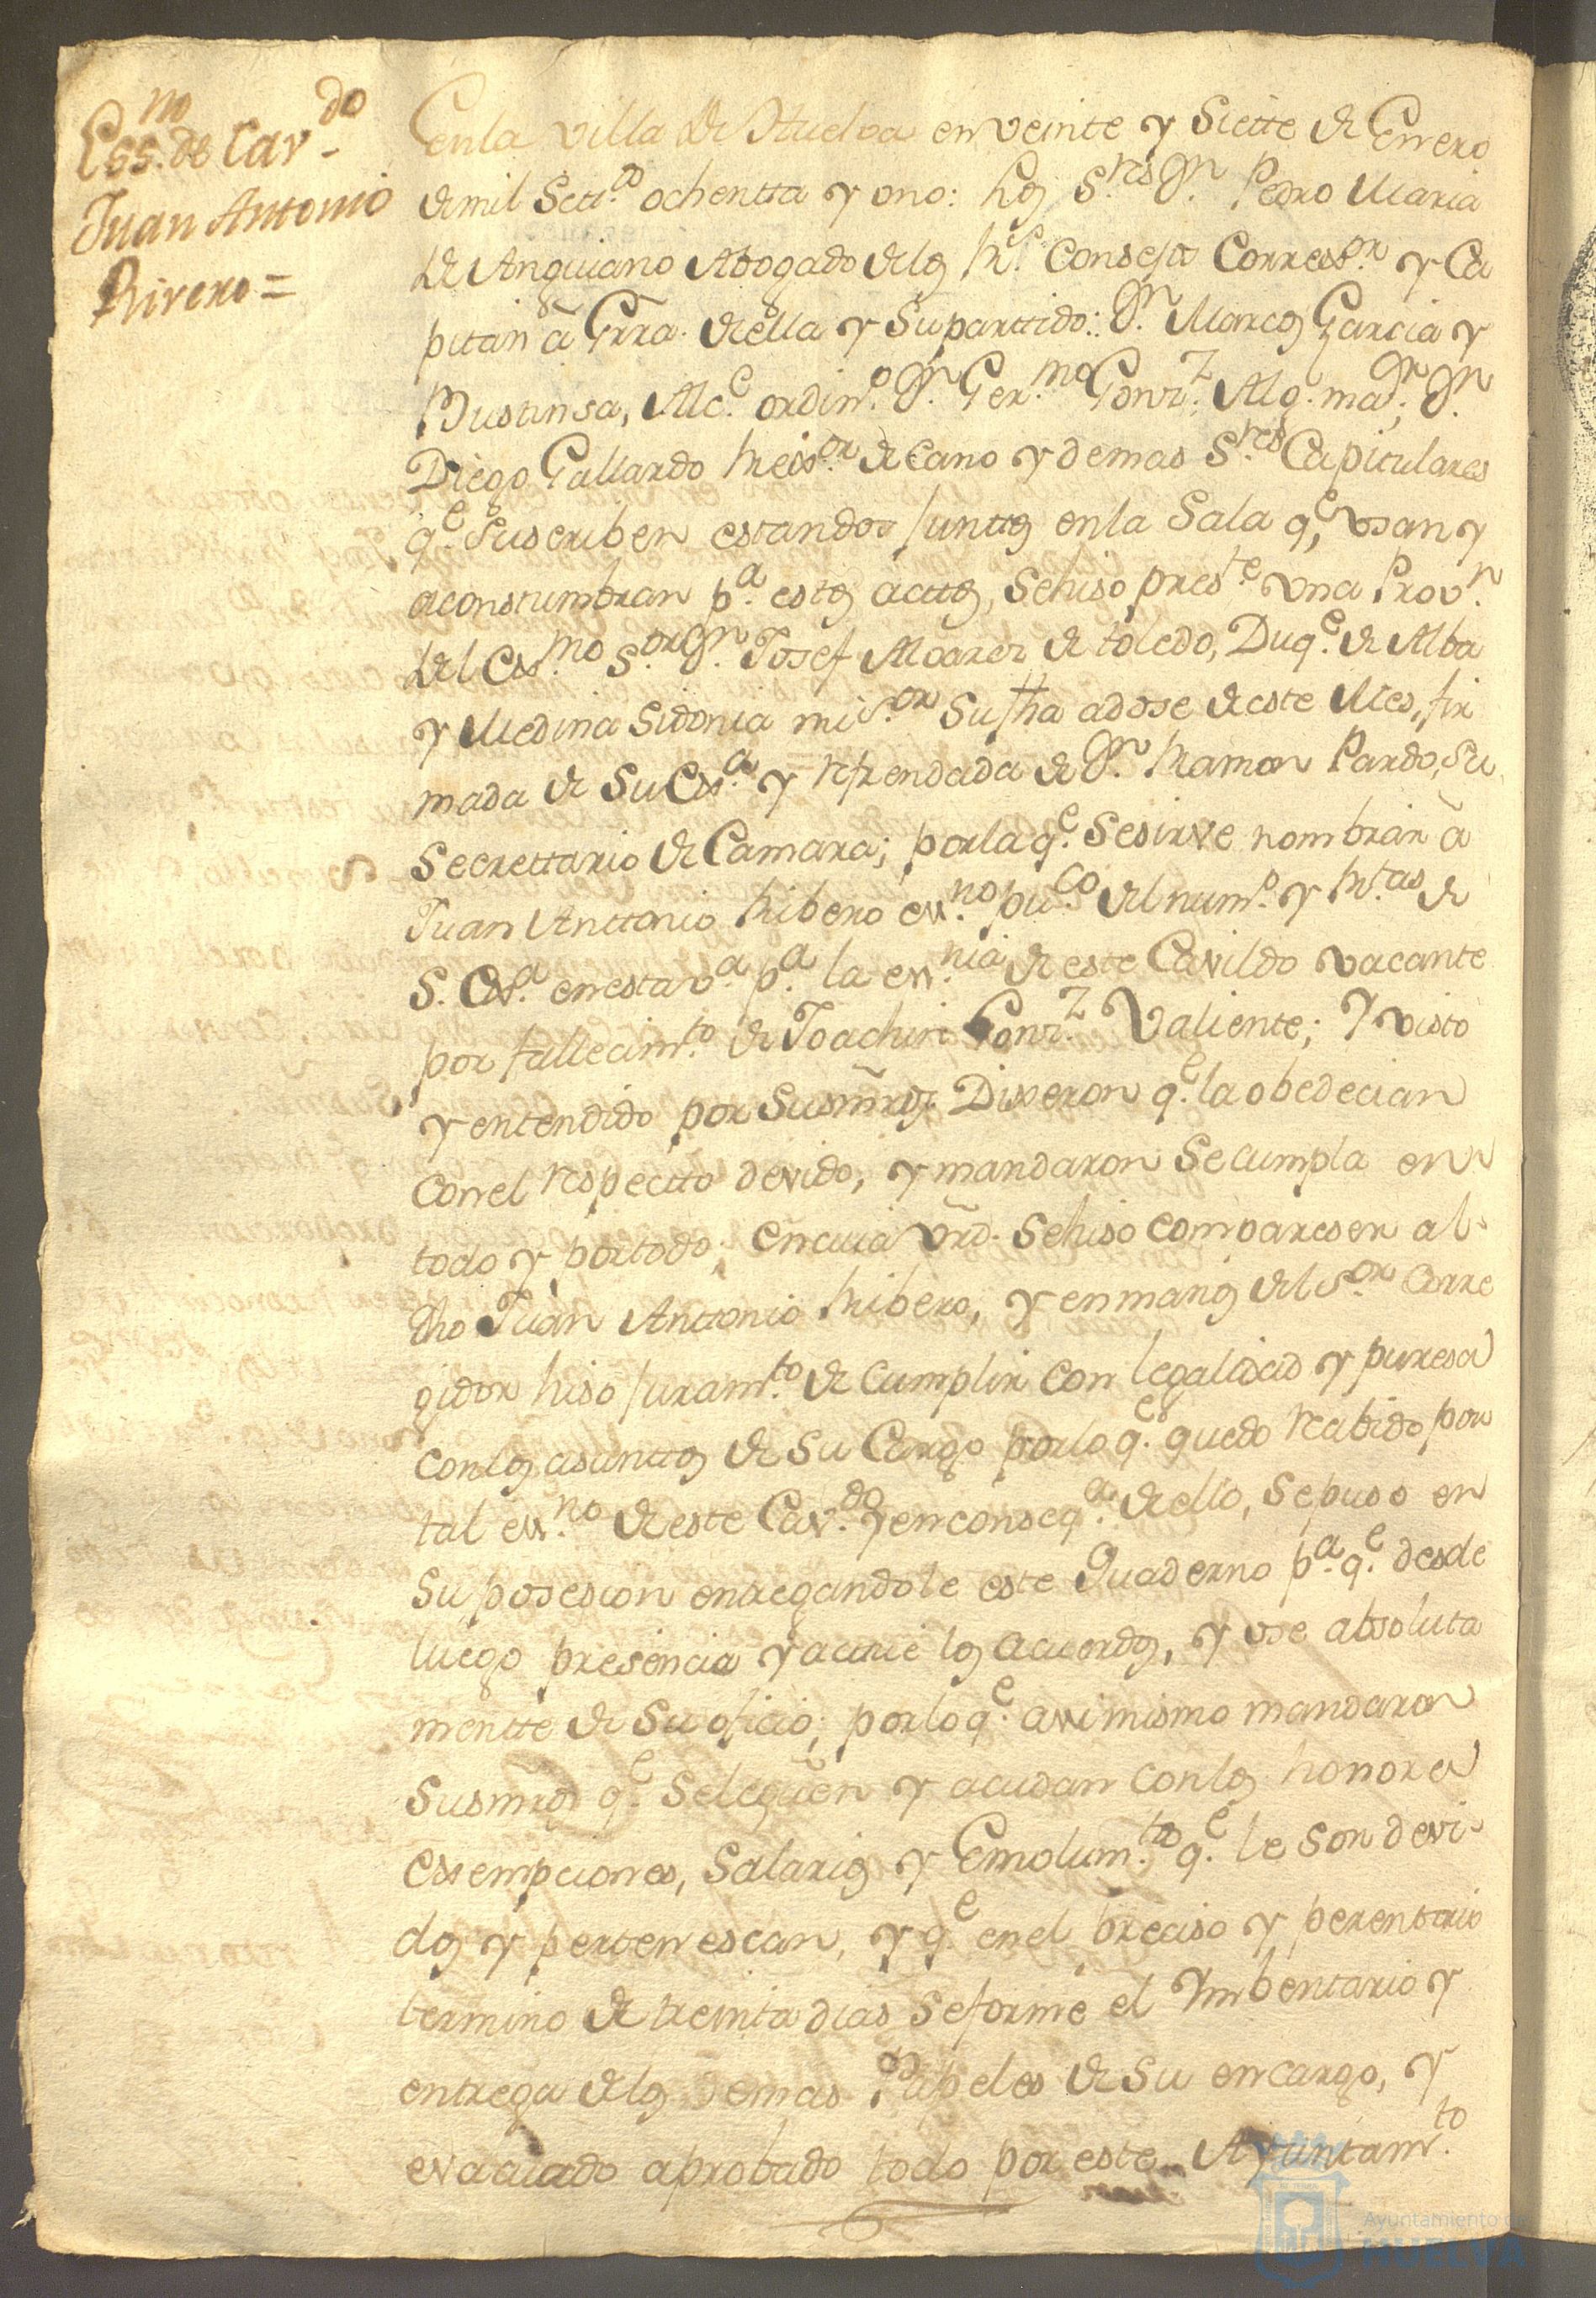 Ess.no de Cav.do
Juan Antonio
Rivero =
En la villa de Huelva en veinte y Siette de Enero
de mil Sett.os ochentta y uno: los S.res D.n Pedro Maria
de Anguiano Abogado de los R.s Consejos Corress.or y Ca
pitan â Grra. de ella y Su parttido: D.n Marcos Garcia y
Bustinsa, Alc.e ordin.o D.n Ger.mo Gonz.z Alg. mar.; D.n
Diego Gallardo Rexs.or decano y demas S.res Capitulares
q.e Suscriben estandos juntos en la Sala q.e usan y
aconstumbran p.a estos acttos, Se hiso pres.te una Prov.n
del Exs.mo S.or D.n Josef Alvarez de toledo, Duq.e de Alba
y Medina Sidonia mi S.or Su fha a dose de este Mes, fir
mada de Su Exs.a y refrendada de D.n Ramon Pardo, Su
Secrettario de Camara; por la q.e Se sirve nombrar â
Juan Anttonio Ribero ess.no pu.co del num.o y R.tas de
S. Exs.a en esta v.a p.a la ess.nia de este Cavildo vacante
por fallecim.to de Joachin Gonz.z Valiente; Y visto
y entendido por Susmrds. Dixeron q.e la obedecian
con el respectto devido, y mandaron Se cumpla en
todo y por todo; En cuia vrd. Se hiso compareser al
dho Juan Anttonio Ribero, y en manos del S.or Corre
gidor hiso juram.to de cumplir con legalidad y puresa
con los asunttos de Su Cargo por lo q.e quedo recibido por
tal ess.no de este Cav.do y en conseq.a de ello, Se puso en
Su posesion entregandole este Quaderno p.a q.e desde
luego presencia y actue los acuerdos, y use absoluta
mentte de Su oficio; por lo q.e assimismo mandaron
Susmrds q.e Se le guen y acudan con los honores
Exsempciones, Salarios y Emolum.tos q.e le son devi-
dos y pertenescan, y q.e en el preciso y perentorio
termino de treinta dias Se forme el Ymbentario y
entrega de los demas Papeles de Su encargo, y
evacuado aprobado todo por este Ayuntam.to
Ayuntamiento de
HUELVA